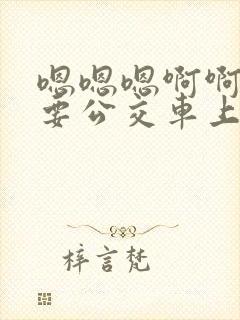 嗯嗯嗯啊啊
要公交车上
梓言梵